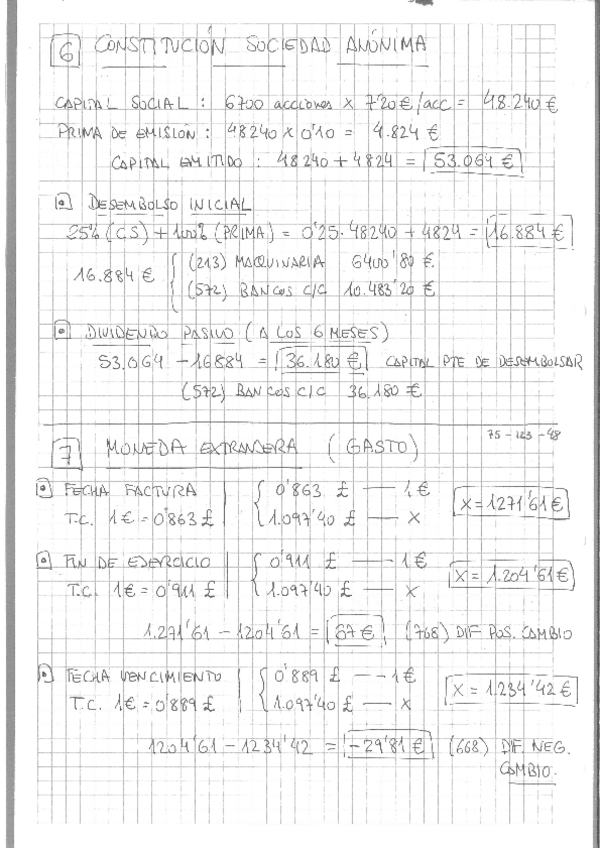 6 CONSTITUCIÓN SOCIEDAD ANÓNIMA
CAPITAL SOCIAL : 6700 acciones x 7'20 €/acc = 48.240 €
PRIMA DE EMISION : 48240 x 0'10 = 4.824 €
CAPITAL EMITIDO : 48240 + 4824 = 53.064 €
DESEMBOLSO INICIAL
25% (CS) + 100% (PRIMA) = 0'25 · 48240 + 4824 = 16.884 €
16.884 € { (213) MAQUINARIA 6400'80 €
(572) BANCOS C/C 10.483'20 €
DIVIDENDO PASIVO (A LOS 6 MESES)
53.064 - 16884 = 36.180 € CAPITAL PTE DE DESEMBOLSAR
(572) BANCOS C/C 36.180 €
75 - 123 - 48
7 MONEDA EXTRANJERA (GASTO)
FECHA FACTURA | { 0'863 £ — 1 € X = 1271'61 €
T.C. 1€ = 0'863 £ | 1.097'40 £ — X
FIN DE EJERCICIO | { 0'911 £ — 1 € X = 1.204'61 €
T.C. 1€ = 0'911 £ | 1.097'40 £ — X
1.271'61 - 1204'61 = 67 € (768) DIF POS. CAMBIO
FECHA VENCIMIENTO | { 0'889 £ — 1 € X = 1.234'42 €
T.C. 1€ = 0'889 £ | 1.097'40 £ — X
1204'61 - 1234'42 = -29'81 € (668) DIF. NEG.
CAMBIO.